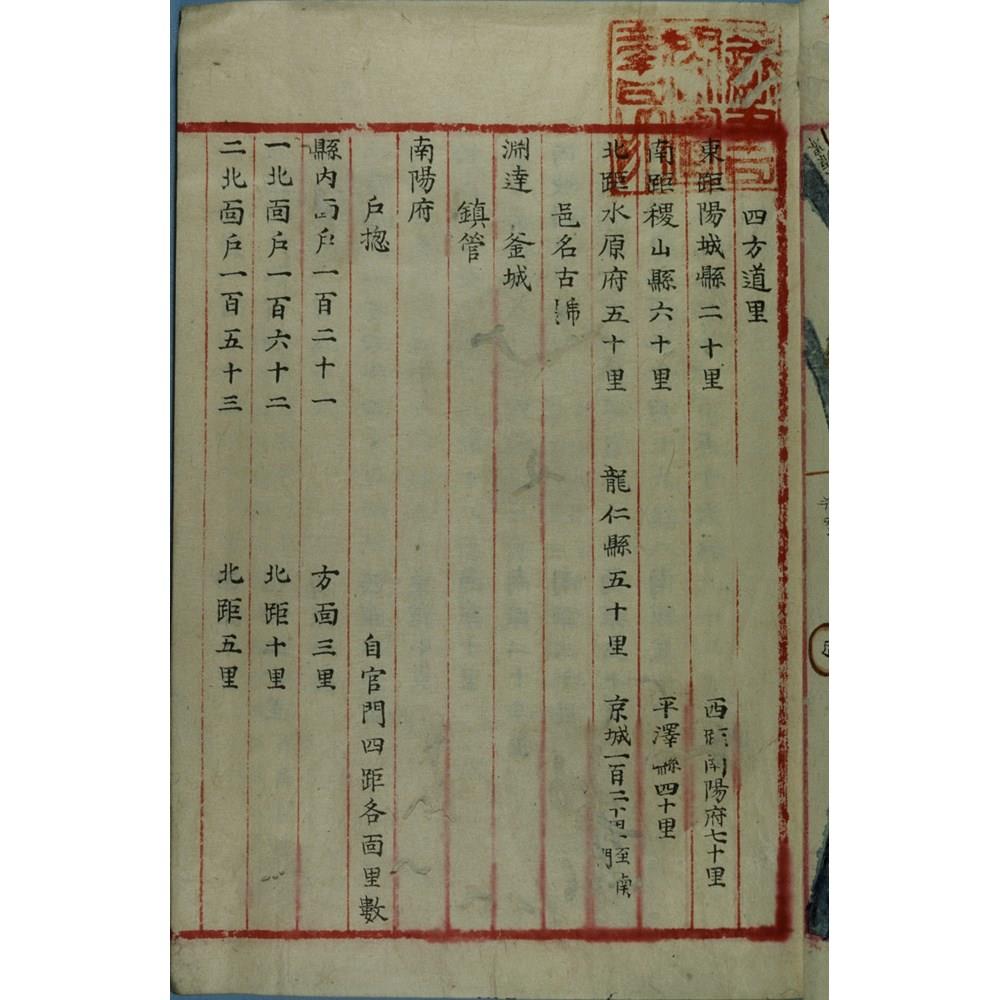 四方道里
東距陽城縣二十里 西距南陽府七十里
南距稷山縣六十里 平澤縣四十里
北距水原府五十里 龍仁縣五十里 京城一百二十里 至南門
邑名古號
淵達 釜城
鎮管
南陽府
戶摠 自官門四距各面里數
縣內面戶一百二十一 方面三里
一北面戶一百六十二 北距十里
二北面戶一百五十三 北距五里